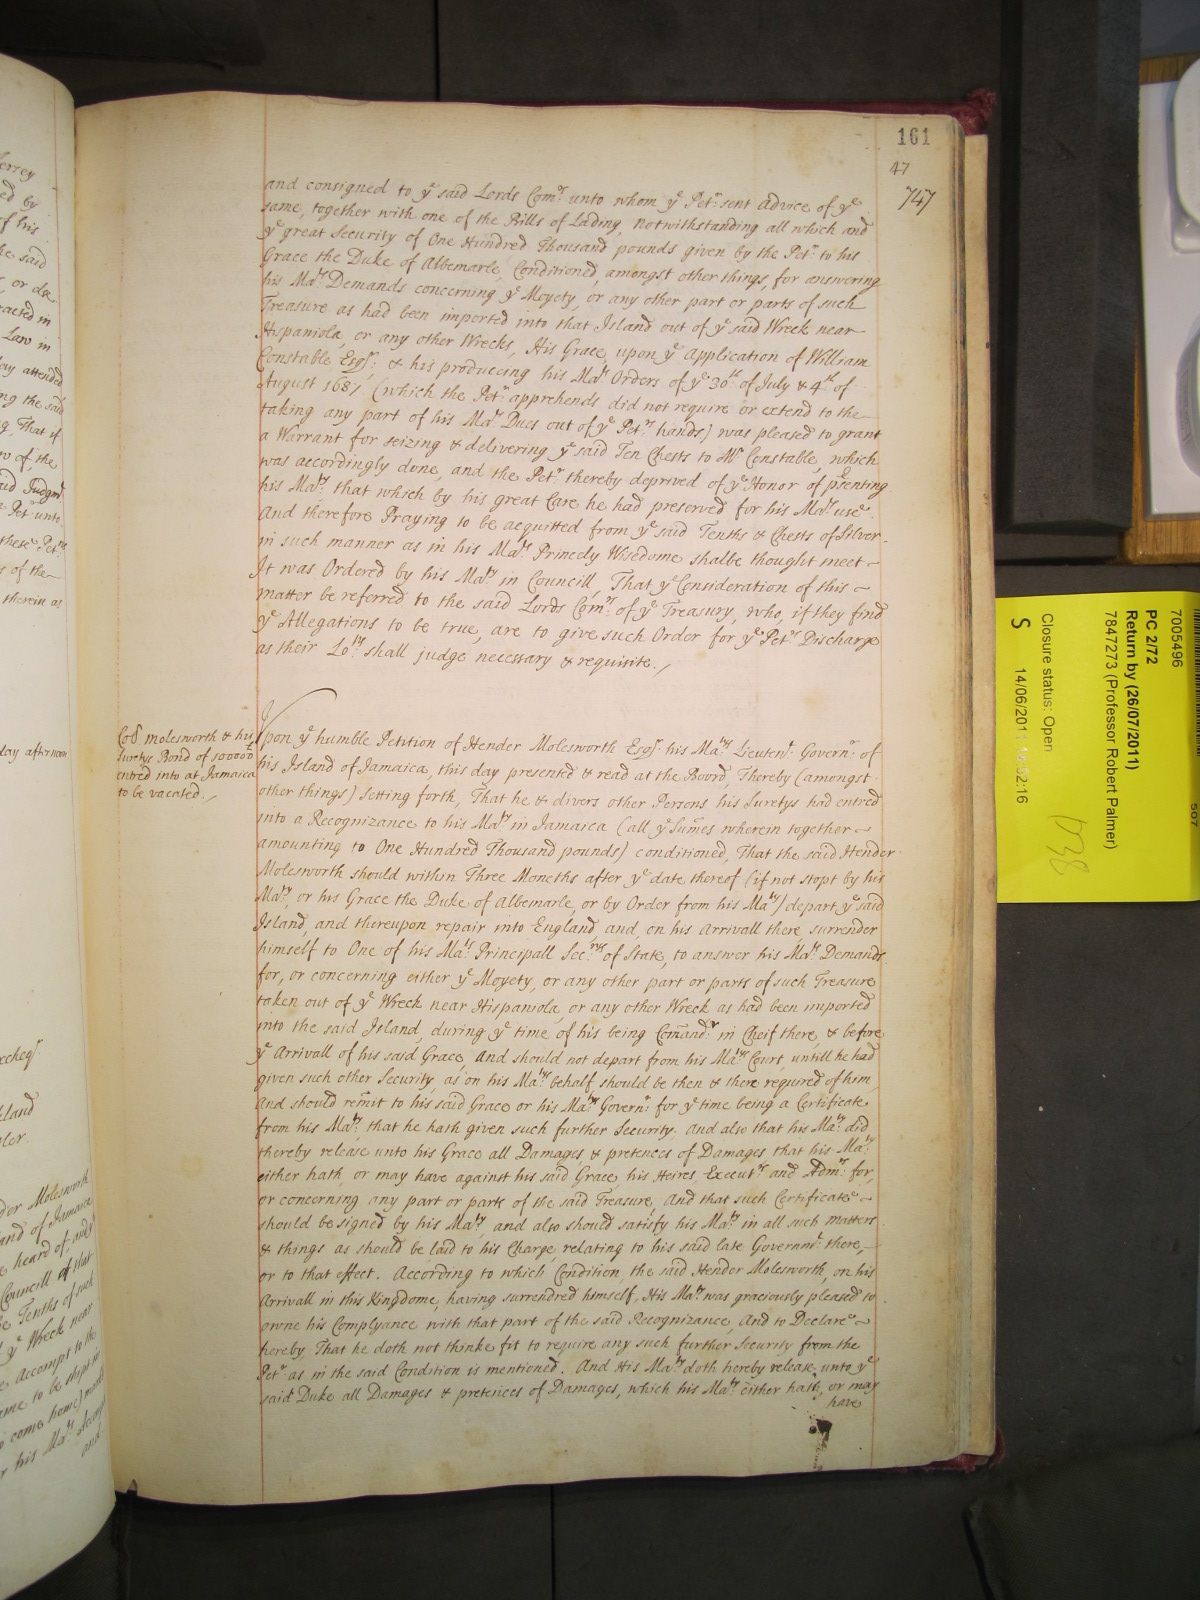 161
47
747
and consigned to yᵉ said Lords Comʳˢ unto whom yᵉ Petʳ sent Advice of yᵉ
same, together with one of the Bills of Lading, Notwithstanding all which and
yᵉ great Security of One Hundred Thousand pounds given by the Petʳ to his
Grace the Duke of Albemarle, Conditioned, amongst other things, for answering
his Maᵗˢ Demands concerning yᵉ Moyety, or any other part or parts of such
Treasure as had been imported into that Island out of yᵉ said Wreck near
Hispaniola, or any other Wrecks, His Grace, upon yᵉ Application of William
Constable Esqʳ, & his producing his Maᵗˢ Orders of yᵉ 30ᵗʰ of July & 4ᵗʰ of
August 1687 (which the Petʳ apprehends did not require or extend to the
taking any part of his Maᵗˢ Dues out of yᵉ Petʳˢ hands) was pleased to grant
a Warrant for seizing & delivering yᵉ said Ten Chests to Mʳ Constable, which
was accordingly done, and the Petʳ thereby deprived of yᵉ Honor of pʳsenting
his Maᵗʸ that which by his great Care he had preserved for his Maᵗˢ use
And therefore Praying to be acquitted from yᵉ said Tenths & Chests of Silver
in such manner as in his Maᵗˢ Princely Wisedome shalbe thought meet
It was Ordered by his Maᵗʸ in Councill, That yᵉ Consideration of this
matter be referred to the said Lords Comʳˢ of yᵉ Treasury, who, if they find
yᵉ Allegations to be true, are to give such Order for yᵉ Petʳˢ Discharge
as their Loᵖˢ shall judge necessary & requisite.
Coˡˡ Molesworth & his
Suretys Bond of 100000ˡ
entred into at Jamaica
to be vacated.
Upon yᵉ humble Petition of Hender Molesworth Esqʳ his Maᵗˢ Lieutenᵗ Governʳ of
his Island of Jamaica, this day presented & read at the Boord, Thereby (amongst
other things) Setting forth, That he & divers other Persons his Suretys had entred
into a Recognizance to his Maᵗʸ in Jamaica (all yᵉ Sumes wherein together
amounting to One Hundred Thousand pounds) conditioned, That the said Hender
Molesworth should within Three Moneths after yᵉ date thereof (if not stopt by his
Maᵗʸ, or his Grace the Duke of Albemarle, or by Order from his Maᵗʸ) depart yᵉ said
Island, and thereupon repair into England, and, on his Arrivall there, surrender
himself to One of his Maᵗˢ Principall Secʳʸˢ of State, to answer his Maᵗˢ Demands
for, or concerning either yᵉ Moyety, or any other part or parts of such Treasure
taken out of yᵉ Wreck near Hispaniola, or any other Wreck as had been imported
into the said Island, during yᵉ time of his being Comandʳ in Cheif there, & before
yᵉ Arrivall of his said Grace, And should not depart from his Maᵗˢ Court, untill he had
given such other Security, as on his Maᵗˢ behalf should be then & there required of him,
And should remit to his said Grace or his Maᵗˢ Governʳ for yᵉ time being a Certificate
from his Maᵗʸ, that he hath given such further Security. And also that his Maᵗʸ did
thereby release unto his Grace all Damages & pretences of Damages that his Maᵗʸ
either hath, or may have against his said Grace, his Heires, Executʳˢ and Admʳˢ for,
or concerning any part or parts of the said Treasure, And that such Certificate
should be signed by his Maᵗʸ, and also should satisfy his Maᵗʸ in all such matters
& things as should be laid to his Charge, relating to his said late Governmᵗ there,
or to that effect. According to which Condition, the said Hender Molesworth, on his
Arrivall in this Kingdome, having surrendred himself, His Maᵗʸ was graciously pleased to
owne his Complyance with that part of the said Recognizance, And to Declare
hereby That he doth not thinke fit to require any such further Security from the
Petʳ as in the said Condition is mentioned. And His Maᵗʸ doth hereby release unto yᵉ
said Duke all Damages & pretences of Damages, which his Maᵗʸ either hath, or may
have
7005496
PC 2/72
Return by (26/07/2011)
7847273 (Professor Robert Palmer)
Closure status: Open
S